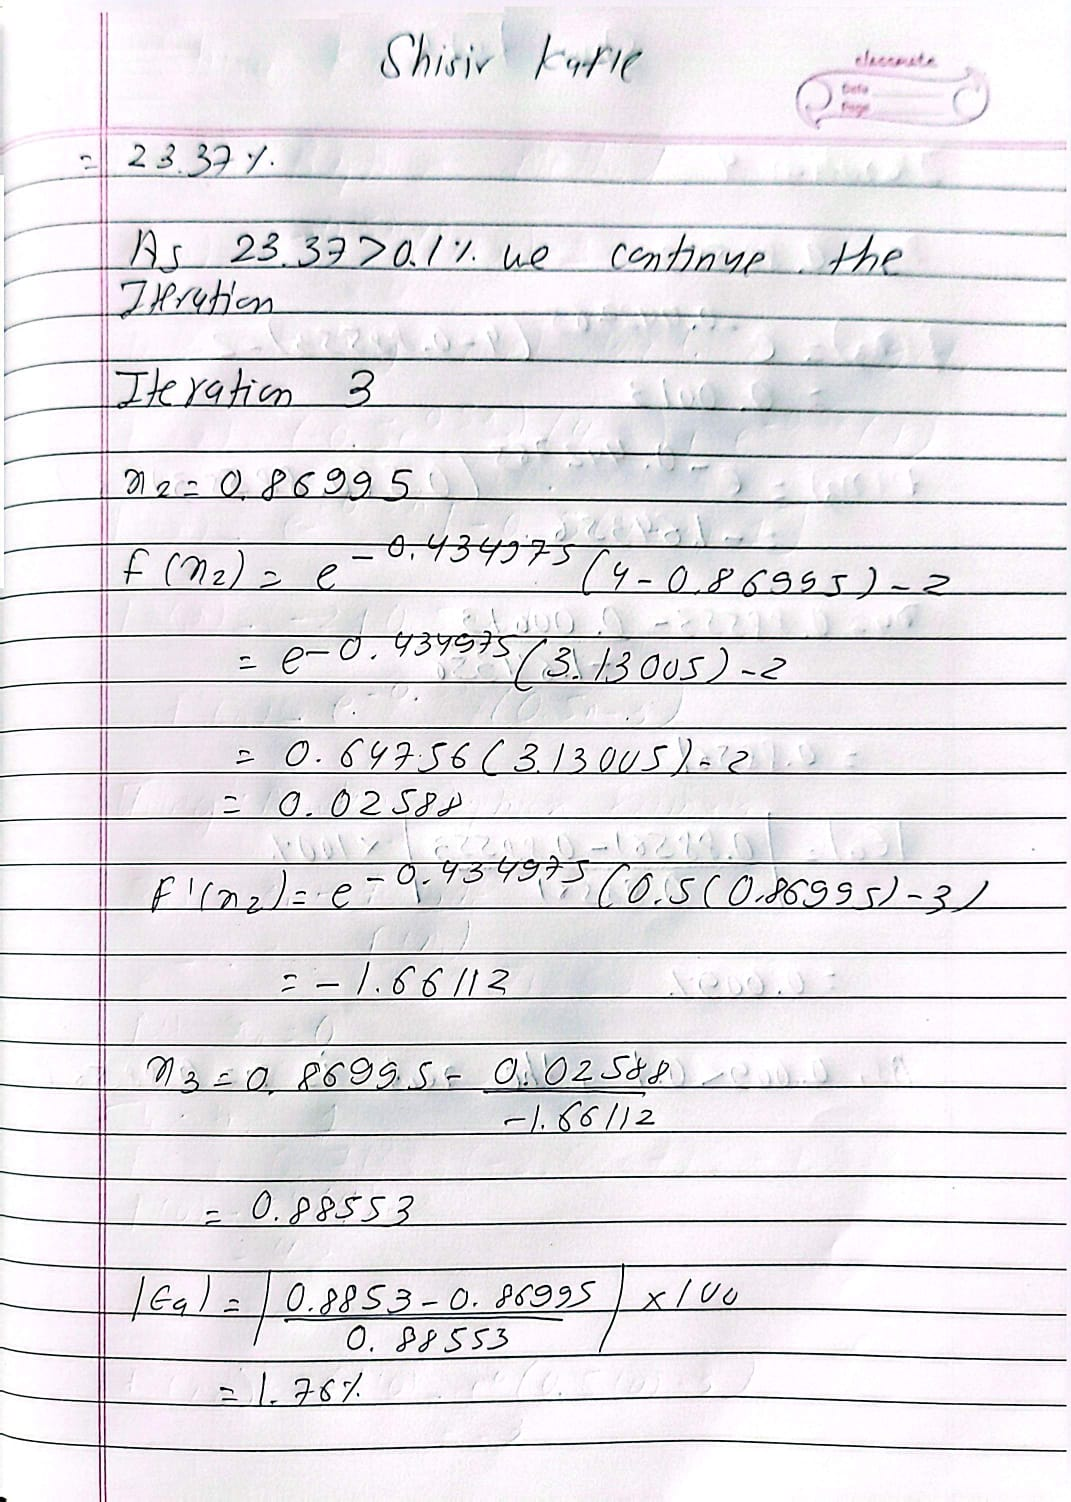 Shisir Kafle
classmate
Date
Page
= 23.37 %.
As 23.37 > 0.1 %. we continue the
Iteration
Iteration 3
x2 = 0.86995
f(x2) = e^-0.434975 (4 - 0.86995) - 2
= e^-0.434975 (3.13005) - 2
= 0.64756 (3.13005) - 2
= 0.02588
f'(x2) = e^-0.434975 (0.5(0.86995) - 3)
= -1.66112
x3 = 0.86995 - 0.02588
-1.66112
= 0.88553
|Ea| = | 0.8853 - 0.86995 | x 100
0.88553
= 1.76%